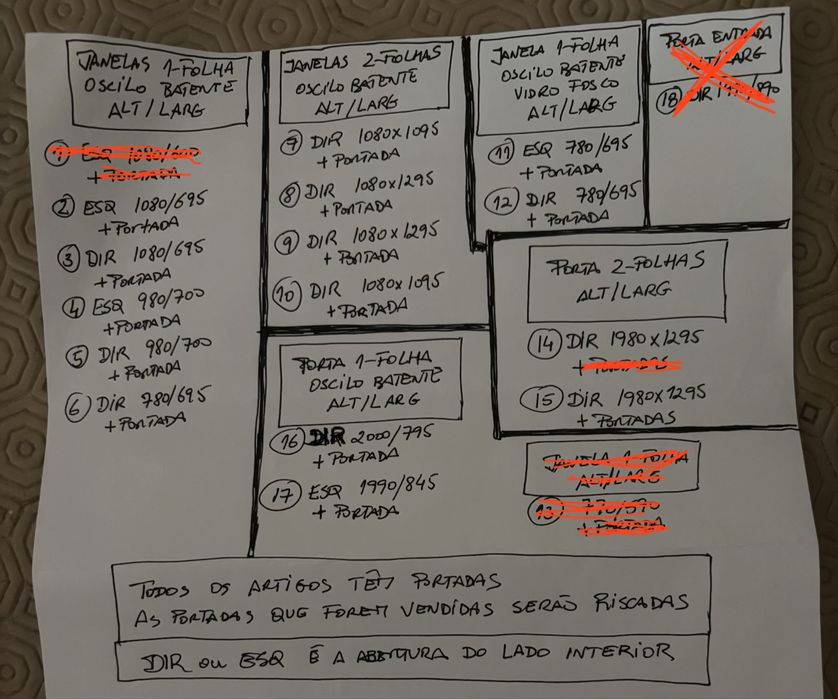 JANELAS 1-FOLHA
OSCILO BATENTE
ALT/LARG
1 ESQ 1080/600
+ PORTADA
2 ESQ 1080/695
+ PORTADA
3 DIR 1080/695
+ PORTADA
4 ESQ 980/700
+ PORTADA
5 DIR 980/700
+ PORTADA
6 DIR 780/695
+ PORTADA
JANELAS 2-FOLHAS
OSCILO BATENTE
ALT/LARG
7 DIR 1080x1095
+ PORTADA
8 DIR 1080x1295
+ PORTADA
9 DIR 1080x1295
+ PORTADA
10 DIR 1080x1095
+ PORTADA
JANELA 1-FOLHA
OSCILO BATENTE
VIDRO FOSCO
ALT/LARG
11 ESQ 780/695
+ PORTADA
12 DIR 780/695
+ PORTADA
PORTA ENTRADA
ALT/LARG
18 DIR
PORTA 2-FOLHAS
ALT/LARG
14 DIR 1980x1295
+ PORTADAS
15 DIR 1980x1295
+ PORTADAS
PORTA 1-FOLHA
OSCILO BATENTE
ALT/LARG
16 DIR 2000/795
+ PORTADA
17 ESQ 1990/845
+ PORTADA
JANELA 1-FOLHA
ALT/LARG
13 770/590
+ PORTADA
TODOS OS ARTIGOS TÊM PORTADAS
AS PORTADAS QUE FOREM VENDIDAS SERÃO RISCADAS
DIR ou ESQ É A ABERTURA DO LADO INTERIOR